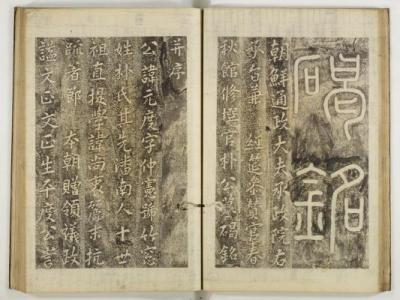 碣銘
朝鮮通政大夫承政院右
承旨兼 經筵參贊官春
秋館修撰官朴公墓碣銘
并序
公諱元度字仲憲號竹窓
姓朴氏其先潘南人十世
祖直提學諱尚衷麗末抗
疏者節 本朝贈領議政
諡文正文正生平度公訔